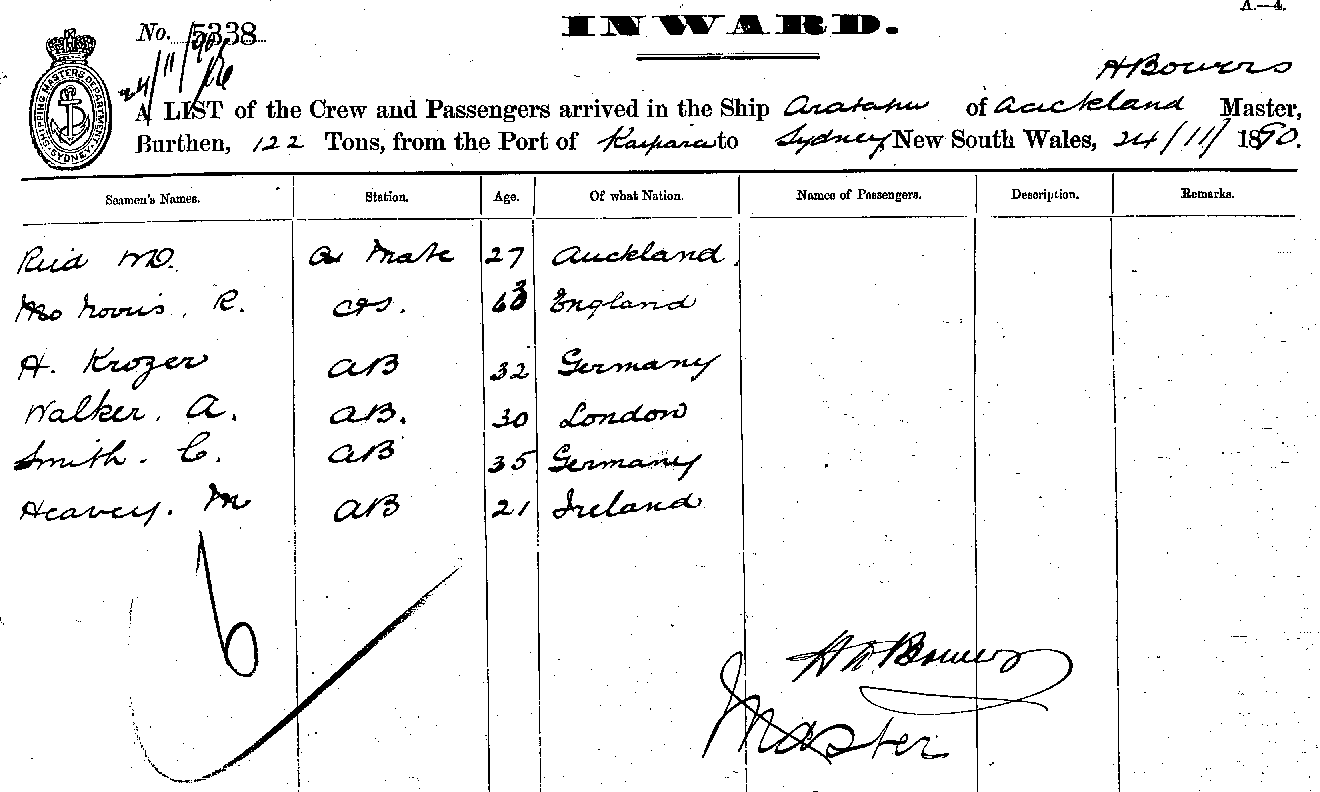 A.—4.
No. 5338
INWARD.
24/11/90
SHIPPING MASTERS DEPARTMENT SYDNEY
H Bowers
A LIST of the Crew and Passengers arrived in the Ship Aratapu of Auckland Master,
Burthen, 122 Tons, from the Port of Kaipara to Sydney New South Wales, 24/11/1890.
Seamen's Names. Station. Age. Of what Nation. Names of Passengers. Description. Remarks.
Reid WD. Mate 27 Auckland.
Norris, R. C&S. England
H. Krozer AB 32 Germany
Walker, A. AB. 30 London
Smith. C. AB 35 Germany
Heavey. M AB 21 Ireland
6
H D Bowers
Master